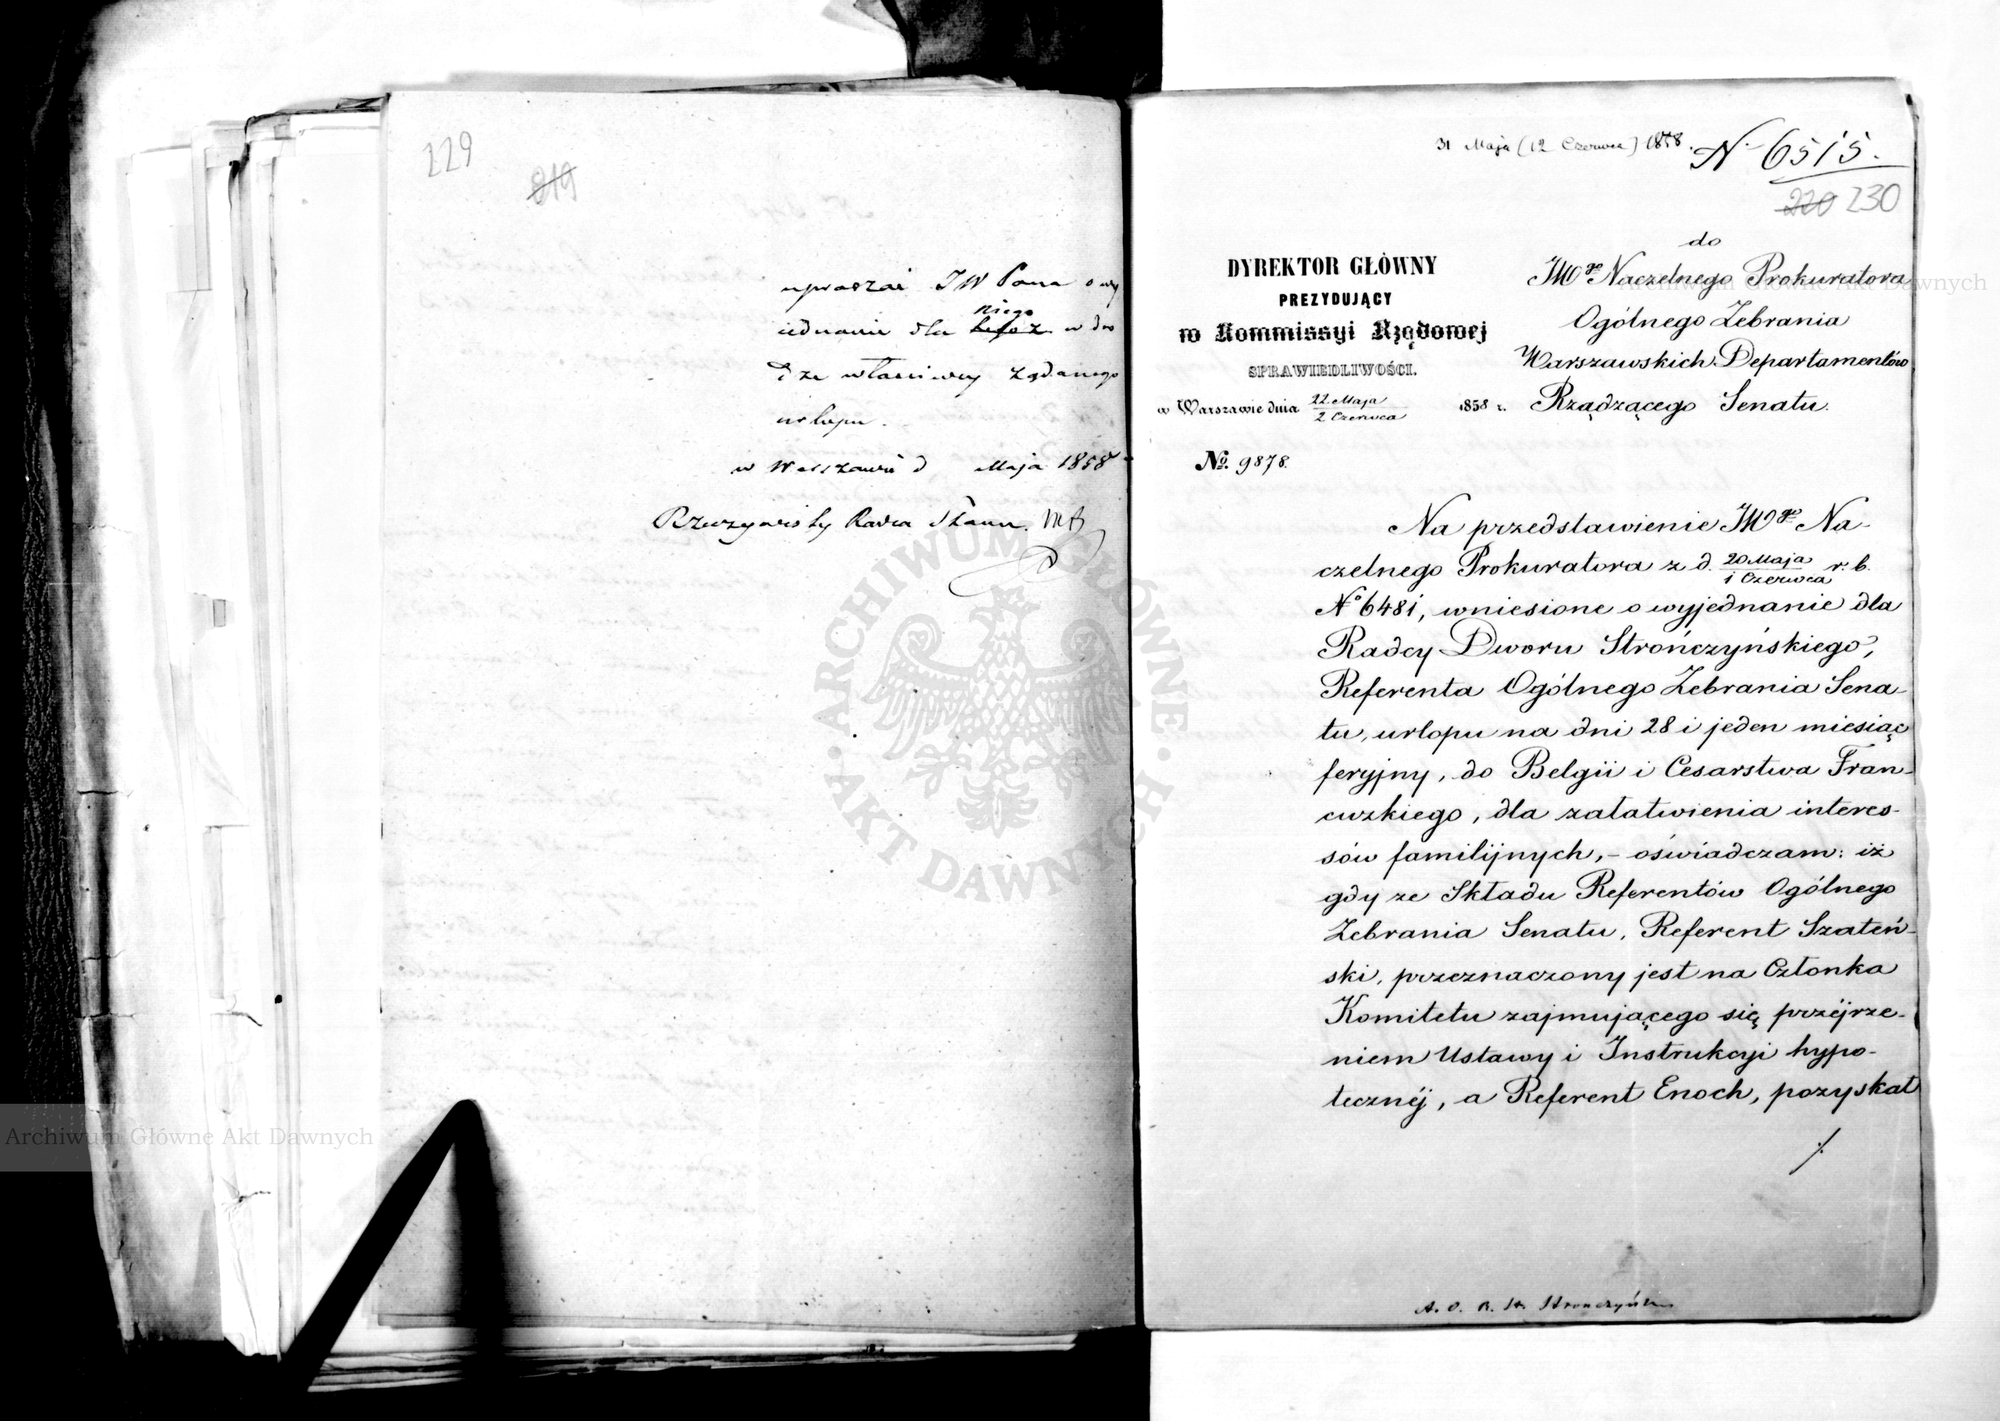 229
219
upraszać JW Pana o wy
iednanie dla niego w dro
dze właściwey żądanego
urlopu.
w Warszawie d Maja 1858
Rzeczywisty Radca Stanu
31 Maja (12 Czerwca) 1858.
N. 6515.
220 230
DYREKTOR GŁÓWNY
PREZYDUJĄCY
w Kommissyi Rządowej
SPRAWIEDLIWOŚCI.
w Warszawie dnia 22 Maja / 2 Czerwca 1858 r.
No. 9878.
do
JWgo Naczelnego Prokuratora
Ogólnego Zebrania
Warszawskich Departamentów
Rządzącego Senatu.
Na przedstawienie JWgo Na-
czelnego Prokuratora z d. 20 Maja / 1 Czerwca r. b.
No 6481, wniesione o wyjednanie dla
Radcy Dworu Strończyńskiego,
Referenta Ogólnego Zebrania Sena-
tu, urlopu na dni 28 i jeden miesiąc
feryjny, do Belgii i Cesarstwa Fran-
cuzkiego, dla załatwienia interes-
sów familijnych, - oświadczam: iż
gdy ze Składu Referentów Ogólnego
Zebrania Senatu, Referent Szateń-
ski, przeznaczony jest na Członka
Komitetu zajmującego się przéjrze-
niem Ustawy i Instrukcyi hypo-
tecznéj, a Referent Enoch, pozyskał
./.
A. O. R. St. Strończyński
ARCHIWUM GŁÓWNE
AKT DAWNYCH
Archiwum Główne Akt Dawnych
Archiwum Główne Akt Dawnych